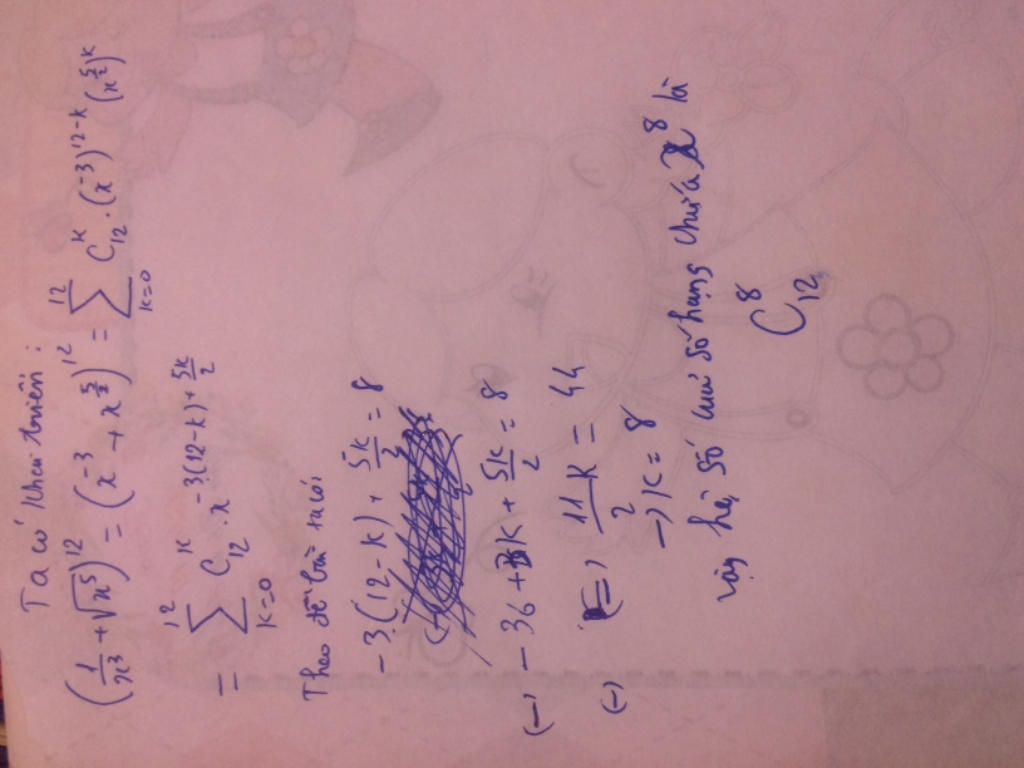 Ta có khai triển:
(1/x³ + √x⁵)¹² = (x⁻³ + x^(5/2))¹² = ∑_{k=0}^{12} C₁₂ᵏ . (x⁻³)¹²⁻ᵏ (x^(5/2))ᵏ
= ∑_{k=0}^{12} C₁₂ᵏ . x^(-3(12-k) + 5k/2)
Theo đề bài ta có:
-3(12-k) + 5k/2 = 8
(-) -36 + 3k + 5k/2 = 8
(=) 11/2 k = 44
(-) -) k = 8
vậy hệ số của số hạng chứa x⁸ là
C₁₂⁸